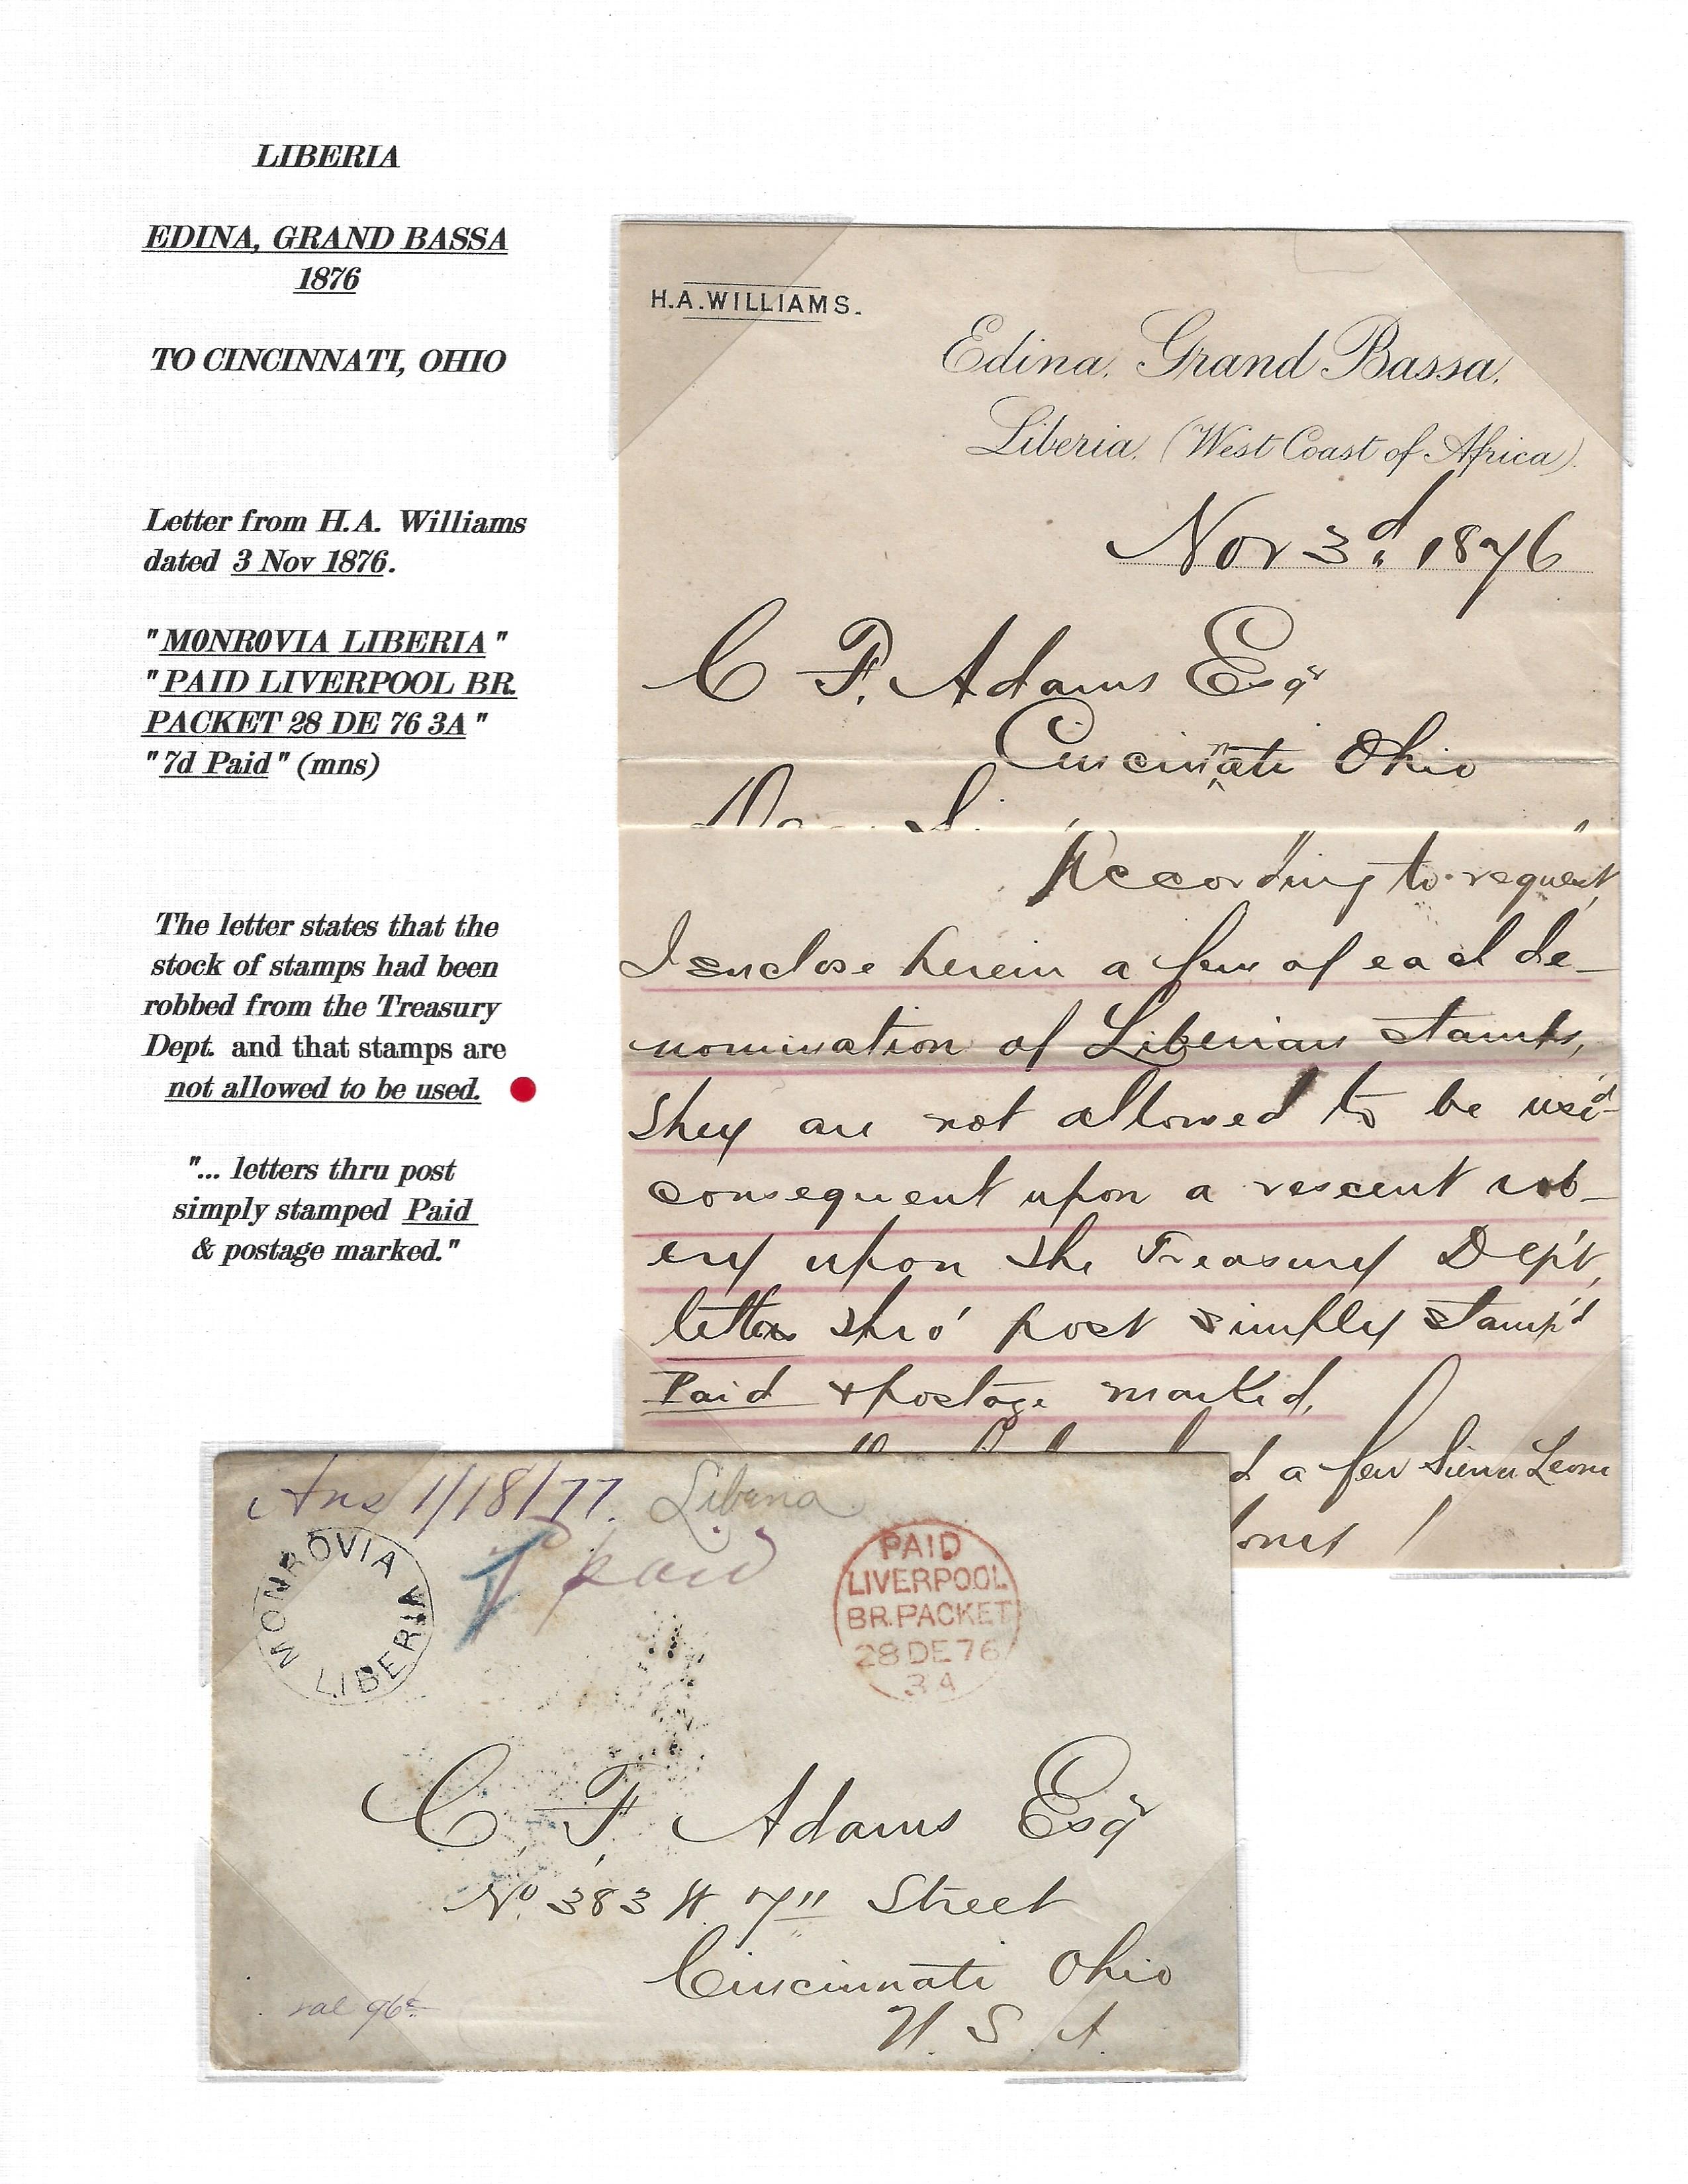 LIBERIA
EDINA, GRAND BASSA
1876
TO CINCINNATI, OHIO
Letter from H.A. Williams
dated 3 Nov 1876.
"MONROVIA LIBERIA"
"PAID LIVERPOOL BR.
PACKET 28 DE 76 3A"
"7d Paid" (mns)
The letter states that the
stock of stamps had been
robbed from the Treasury
Dept. and that stamps are
not allowed to be used.
"... letters thru post
simply stamped Paid
& postage marked."
H.A.WILLIAMS.
Edina, Grand Bassa,
Liberia, (West Coast of Africa).
Nov 3d, 1876
C F. Adams Esqr
Cincinnati Ohio
According to request,
I enclose herein a few of each de-
nomination of Liberian stamps,
they are not allowed to be us'd
consequent upon a rescent rob-
ery upon the Treasury Dep't,
letters thro' post simply stamp'd
Paid & postage marked,
d a few Sierra Leone
ones
Ans 1/18/77. Liberia
MONROVIA LIBERIA
paid
PAID
LIVERPOOL
BR.PACKET
28 DE 76
3A
C. F. Adams Esqr
No. 383 W. 7" Street
Cincinnati Ohio
U. S. A.
val 96c